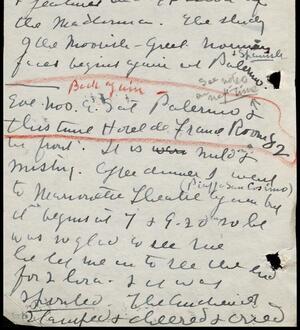 of the Madonna. The study
of the Moorish-Greek Norman
& Spanish
faces begins again at Palermo.
Back again
See notes
Eve Nov. 6. Sat Palermo &
this time Hotel de France Room 2
in front. It is mild &
misty. After dinner I went
(Piazza San Cosimo)
to Marionette Theatre again but
it begins at 7 & 9-20 so he
was so glad to see me
he let me in to see the end
for 2 lira. & it was
spirited. The audience
stamped & cheered & cried